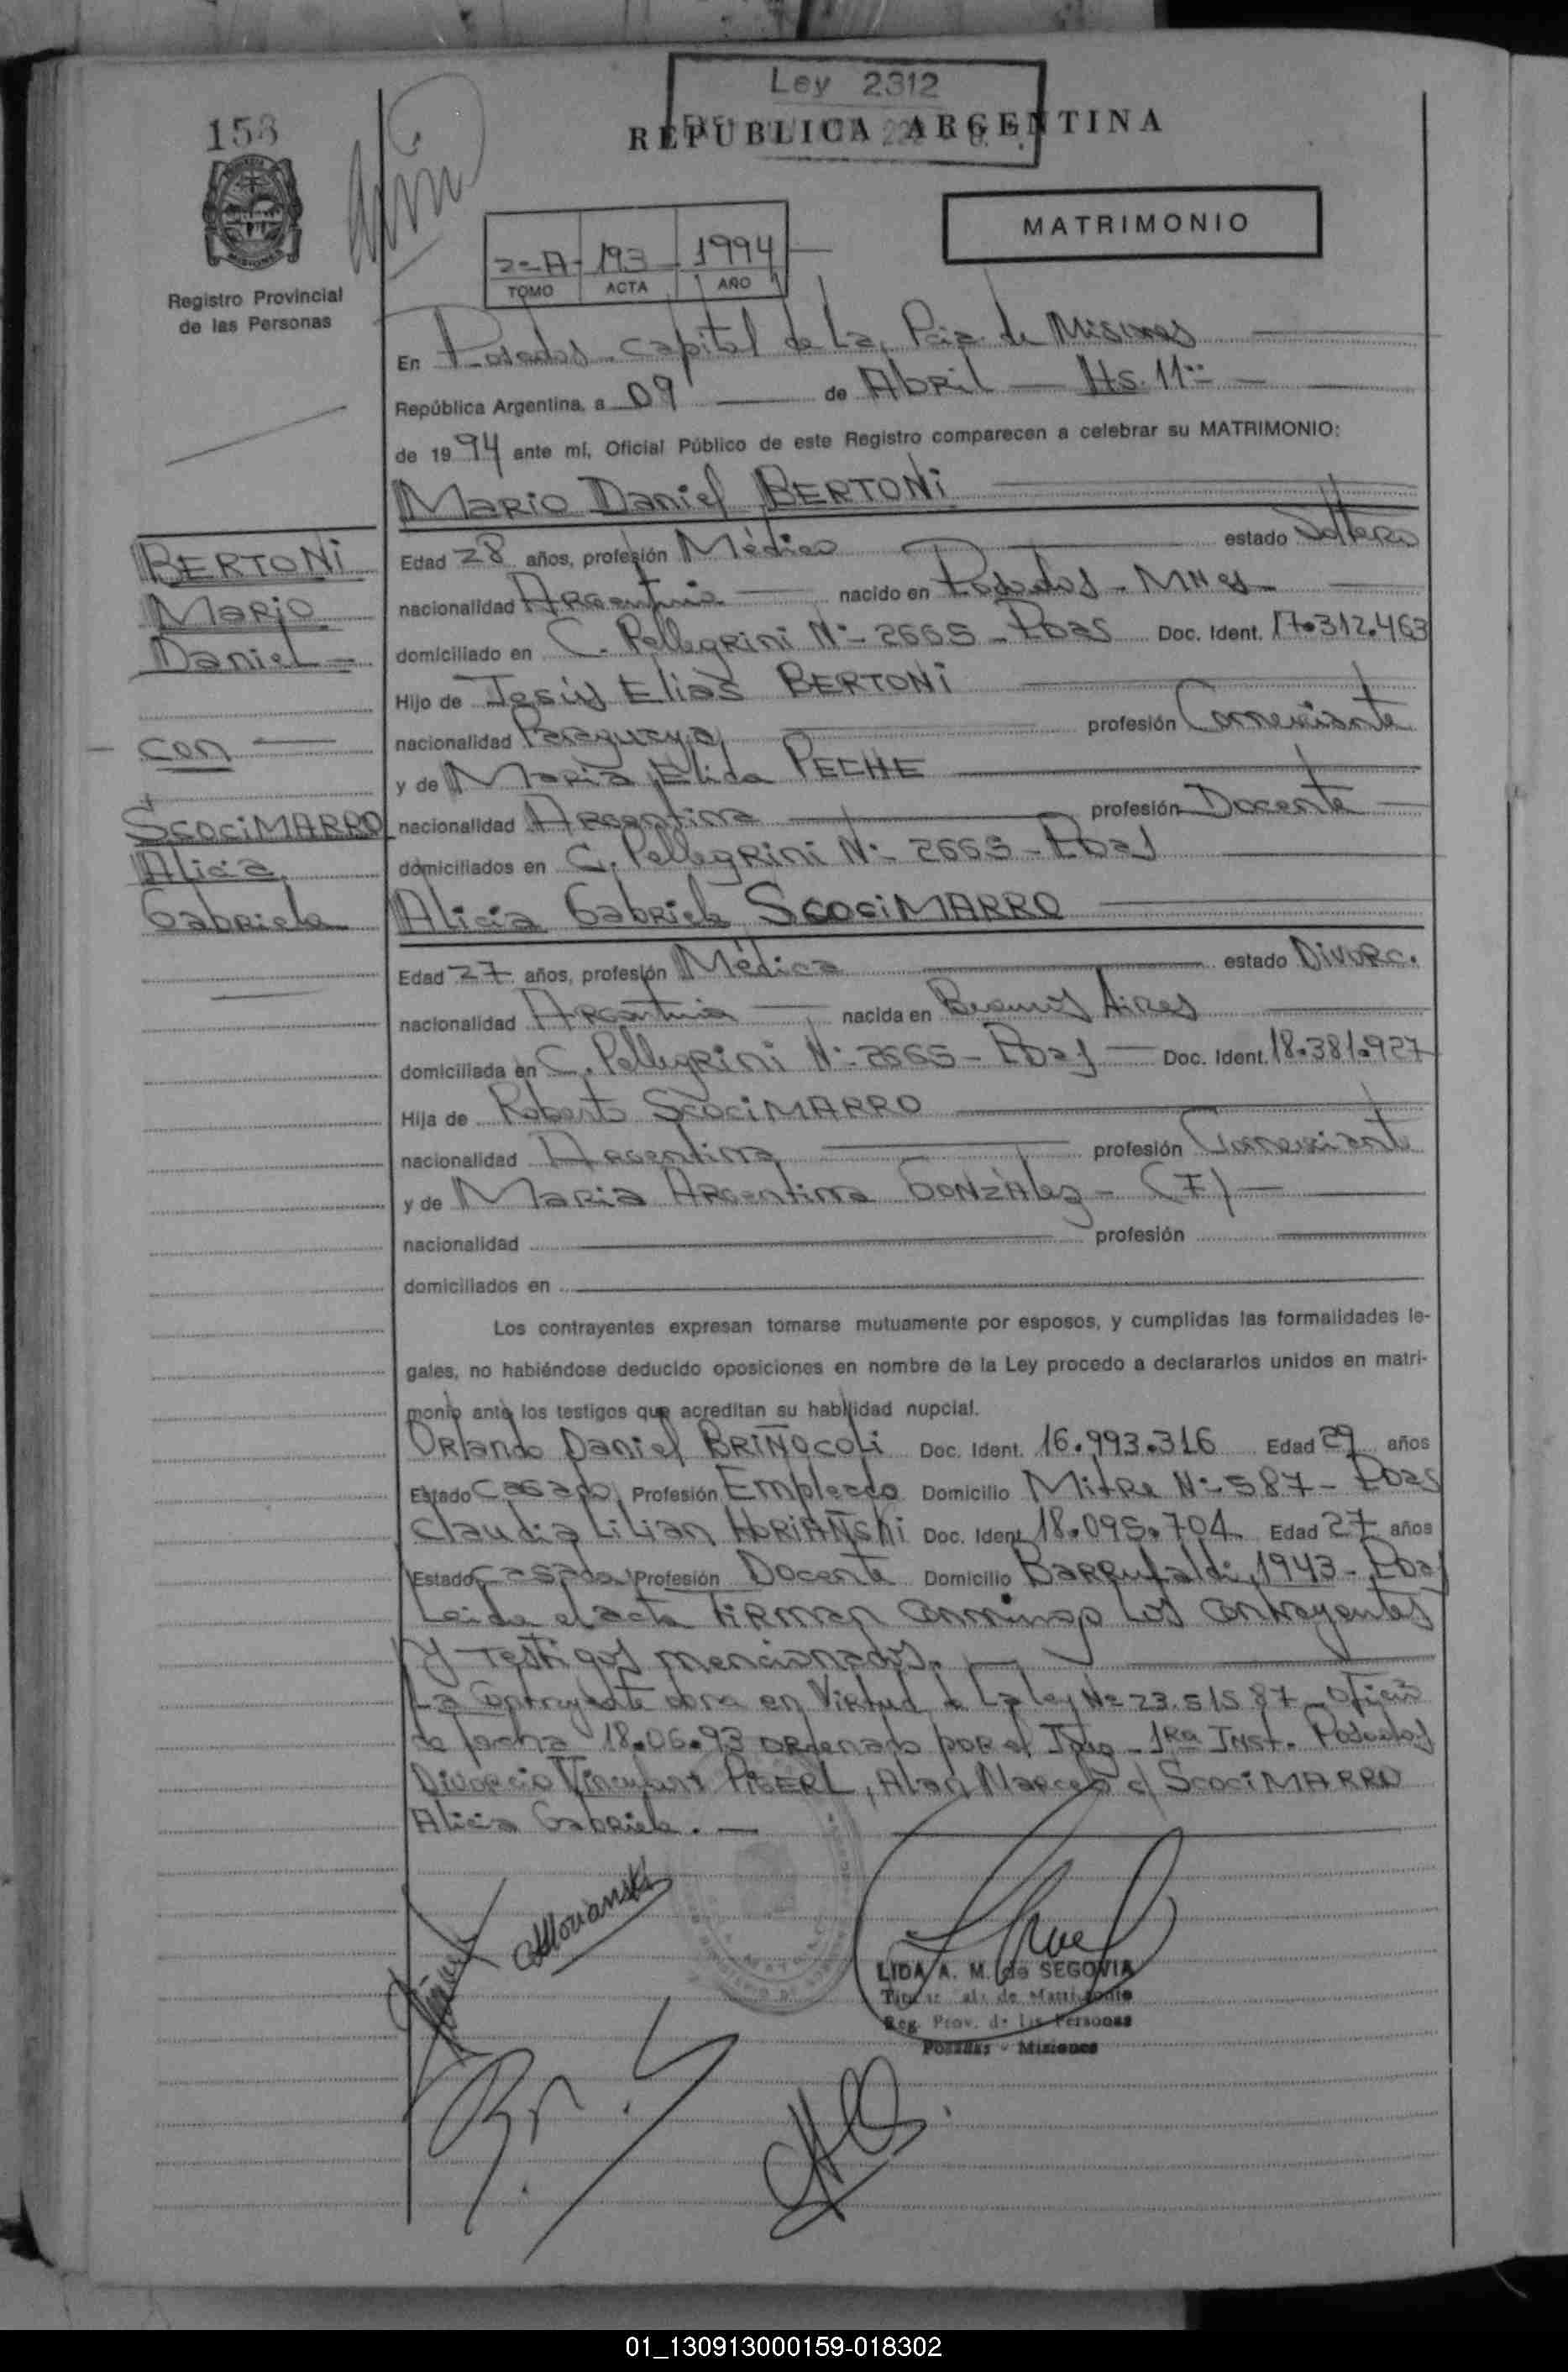 Ley 2312
REPUBLICA ARGENTINA
MATRIMONIO
2=A- 193 - 1994
TOMO ACTA AÑO
Registro Provincial
de las Personas
En Posadas - Capital de La, Pcia. de Misiones
República Argentina, a 09 de Abril - Hs. 11
de 1994 ante mí, Oficial Público de este Registro comparecen a celebrar su MATRIMONIO:
Mario Daniel BERTONI
BERTONI
Mario
Daniel -
- con
SCOCIMARRO
Alicia
Gabriela
Edad 28 años, profesión Médico estado Soltero
nacionalidad Argentina nacido en Posadas - Mnes -
domiciliado en C. Pellegrini Nº 2665 - Pdas Doc. Ident. 17.312.463
Hijo de Jesús Elias BERTONI
nacionalidad Paraguaya profesión Comerciante
y de Maria Elida PECHE
nacionalidad Argentina profesión Docente
domiciliados en C. Pellegrini Nº 2665 - Pdas
Alicia Gabriela SCOCIMARRO
Edad 27 años, profesión Médica estado Divorc.
nacionalidad Argentina nacida en Buenos Aires
domiciliada en C. Pellegrini Nº 2665 - Pdas - Doc. Ident. 18.381.927
Hija de Roberto SCOCIMARRO
nacionalidad Argentina profesión Comerciante
y de Maria Argentina GONZÁlez - (F) -
nacionalidad profesión
domiciliados en
Los contrayentes expresan tomarse mutuamente por esposos, y cumplidas las formalidades le-
gales, no habiéndose deducido oposiciones en nombre de la Ley procedo a declararlos unidos en matri-
monio ante los testigos que acreditan su habilidad nupcial.
Orlando Daniel BRIÑOCOLI Doc. Ident. 16.993.316 Edad 29 años
Estado Casado Profesión Empleado Domicilio Mitre Nº 587 - Pdas
Claudia Lilian Doc. Ident. 18.095.704 Edad 27 años
Estado Casada Profesión Docente Domicilio Barrufaldi, 1943 - Pdas
Leida el acta Firman conmigo los contrayentes
y Testigos mencionados.
La contrayente obra en Virtud de La ley Nº 23.515 87 - Oficio
de fecha 18.06.93 ordenado por el Juzg - 1ra Inst. Posadas
Divorcio Vincular Alan Marcelo c/ SCOCIMARRO
Alicia Gabriela. -
LIDA A. M. de SEGOVIA
de Matrimonio
Reg. Prov. de las Personas
Posadas - Misiones
01_130913000159-018302